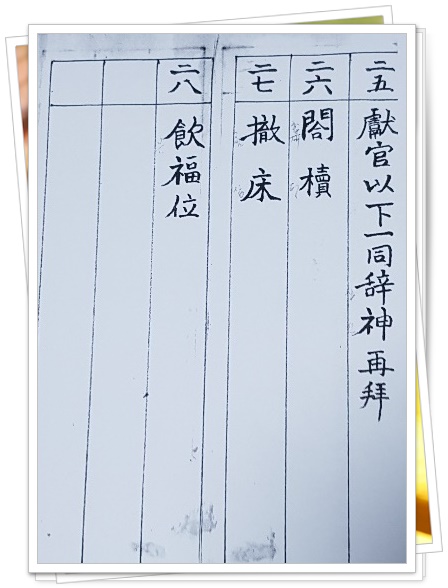 二五
獻官以下一同辞神再拜
二六
閤櫝
二七
撤床
二八
飮福位